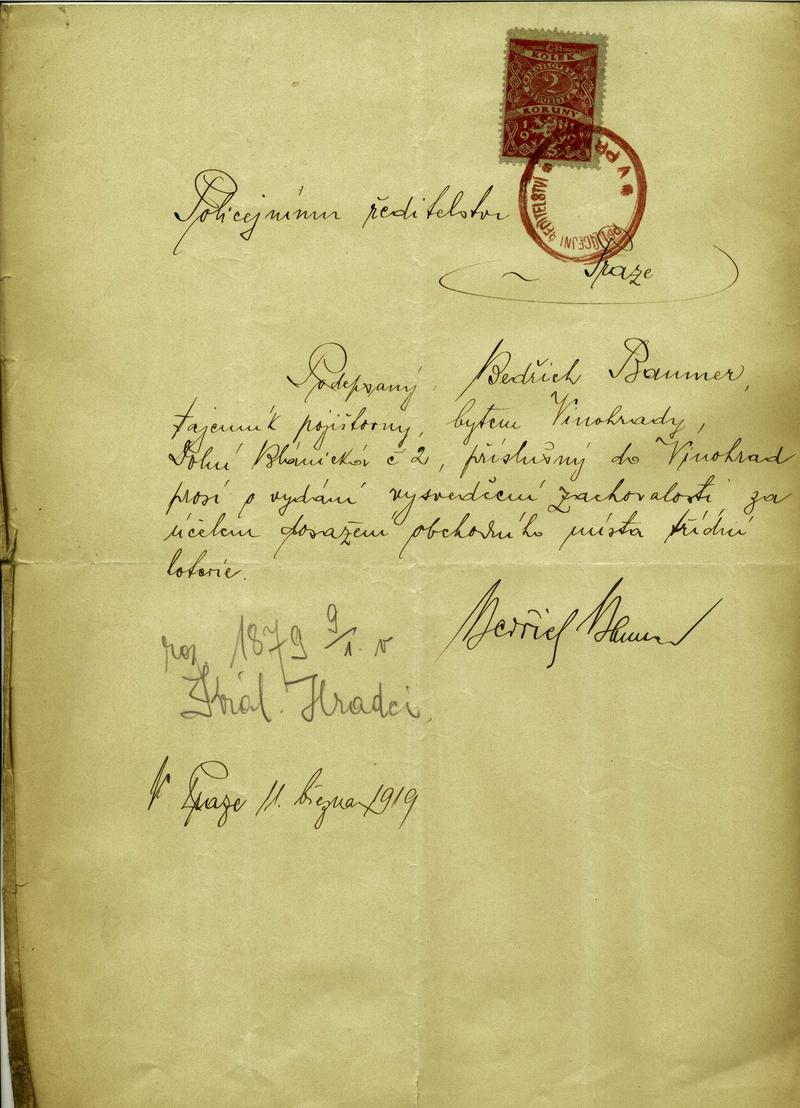 KOLEK
ČESKOSLOVENSKÁ
2
REPUBLIKA
KORUNY
1919
POLICEJNÍ ŘEDITELSTVÍ V PR
Policejnímu ředitelství
v Praze
Podepsaný Bedřich Baumer,
tajemník pojišťovny, bytem Vinohrady,
Dolní Blanická č 2, příslušný do Vinohrad
prosí o vydání vysvědčení zachovalosti za
účelem dosažení obchodního místa třídní
loterie.
Bedřich
roz. 1879 9/1. v
Král. Hradci.
V Praze 11. března 1919